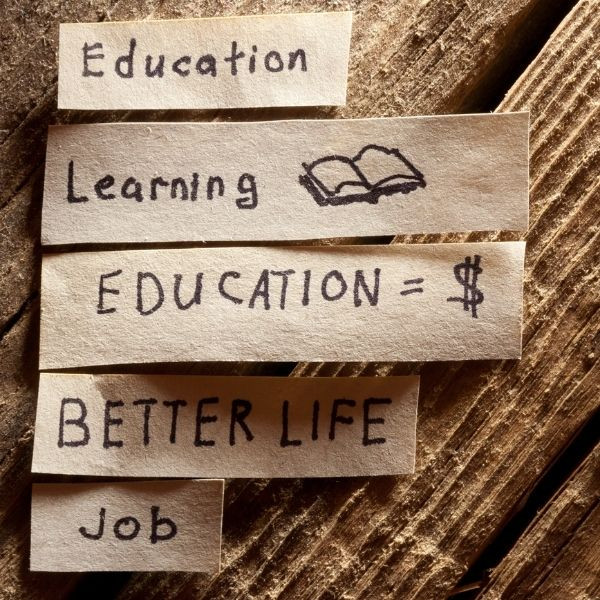 Education
Learning
EDUCATION = $
BETTER LIFE
Job